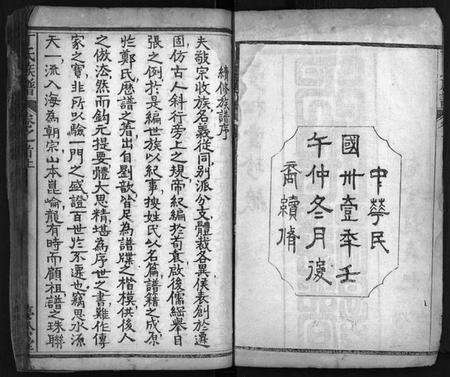 中華民
國卅壹年壬
午仲冬月後
裔續脩
續修族譜序
夫敬宗收族名義從同別派分支體裁各異僕表創於遷
固仿古人斜行旁上之規帝紀編於荀袁啟後儒經舉目
張之例於是編世族以紀事按姓氏以名篇譜籍之成原
於鄭氏曆譜之著出自劉歆皆足為譜牒之楷模供後人
之倣㳒然而鈎元提要體大思精堪為序世之書難作傳
家之寶非所以驗一門之盛證百世於不遷也竊思水源
天一流入海為朝宗山本崑崙龍有時而顧祖譜之珠聯
氏族譜